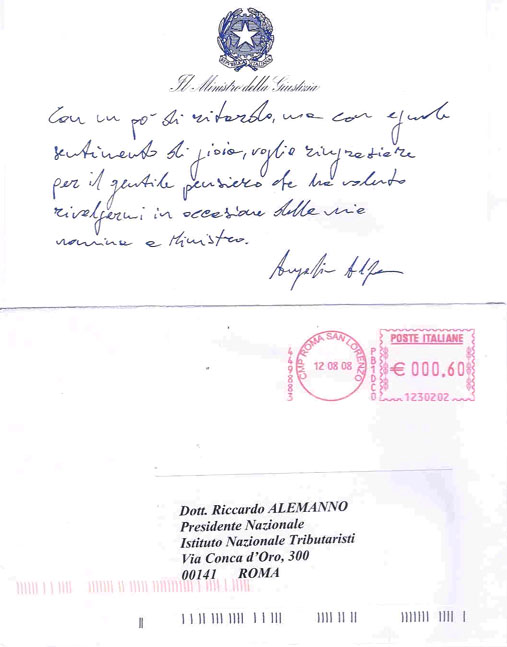 Il Ministro della Giustizia
Con un pò di ritardo, ma con eguale
sentimento di gioia, voglio ringraziare
per il gentile pensiero che ha voluto
rivolgermi in occasione della mia
nomina a Ministro.
CMP ROMA SAN LORENZO
12 08 08
449883
PB1DC0
POSTE ITALIANE
€ 000.60
1230202
Dott. Riccardo ALEMANNO
Presidente Nazionale
Istituto Nazionale Tributaristi
Via Conca d'Oro, 300
00141 ROMA